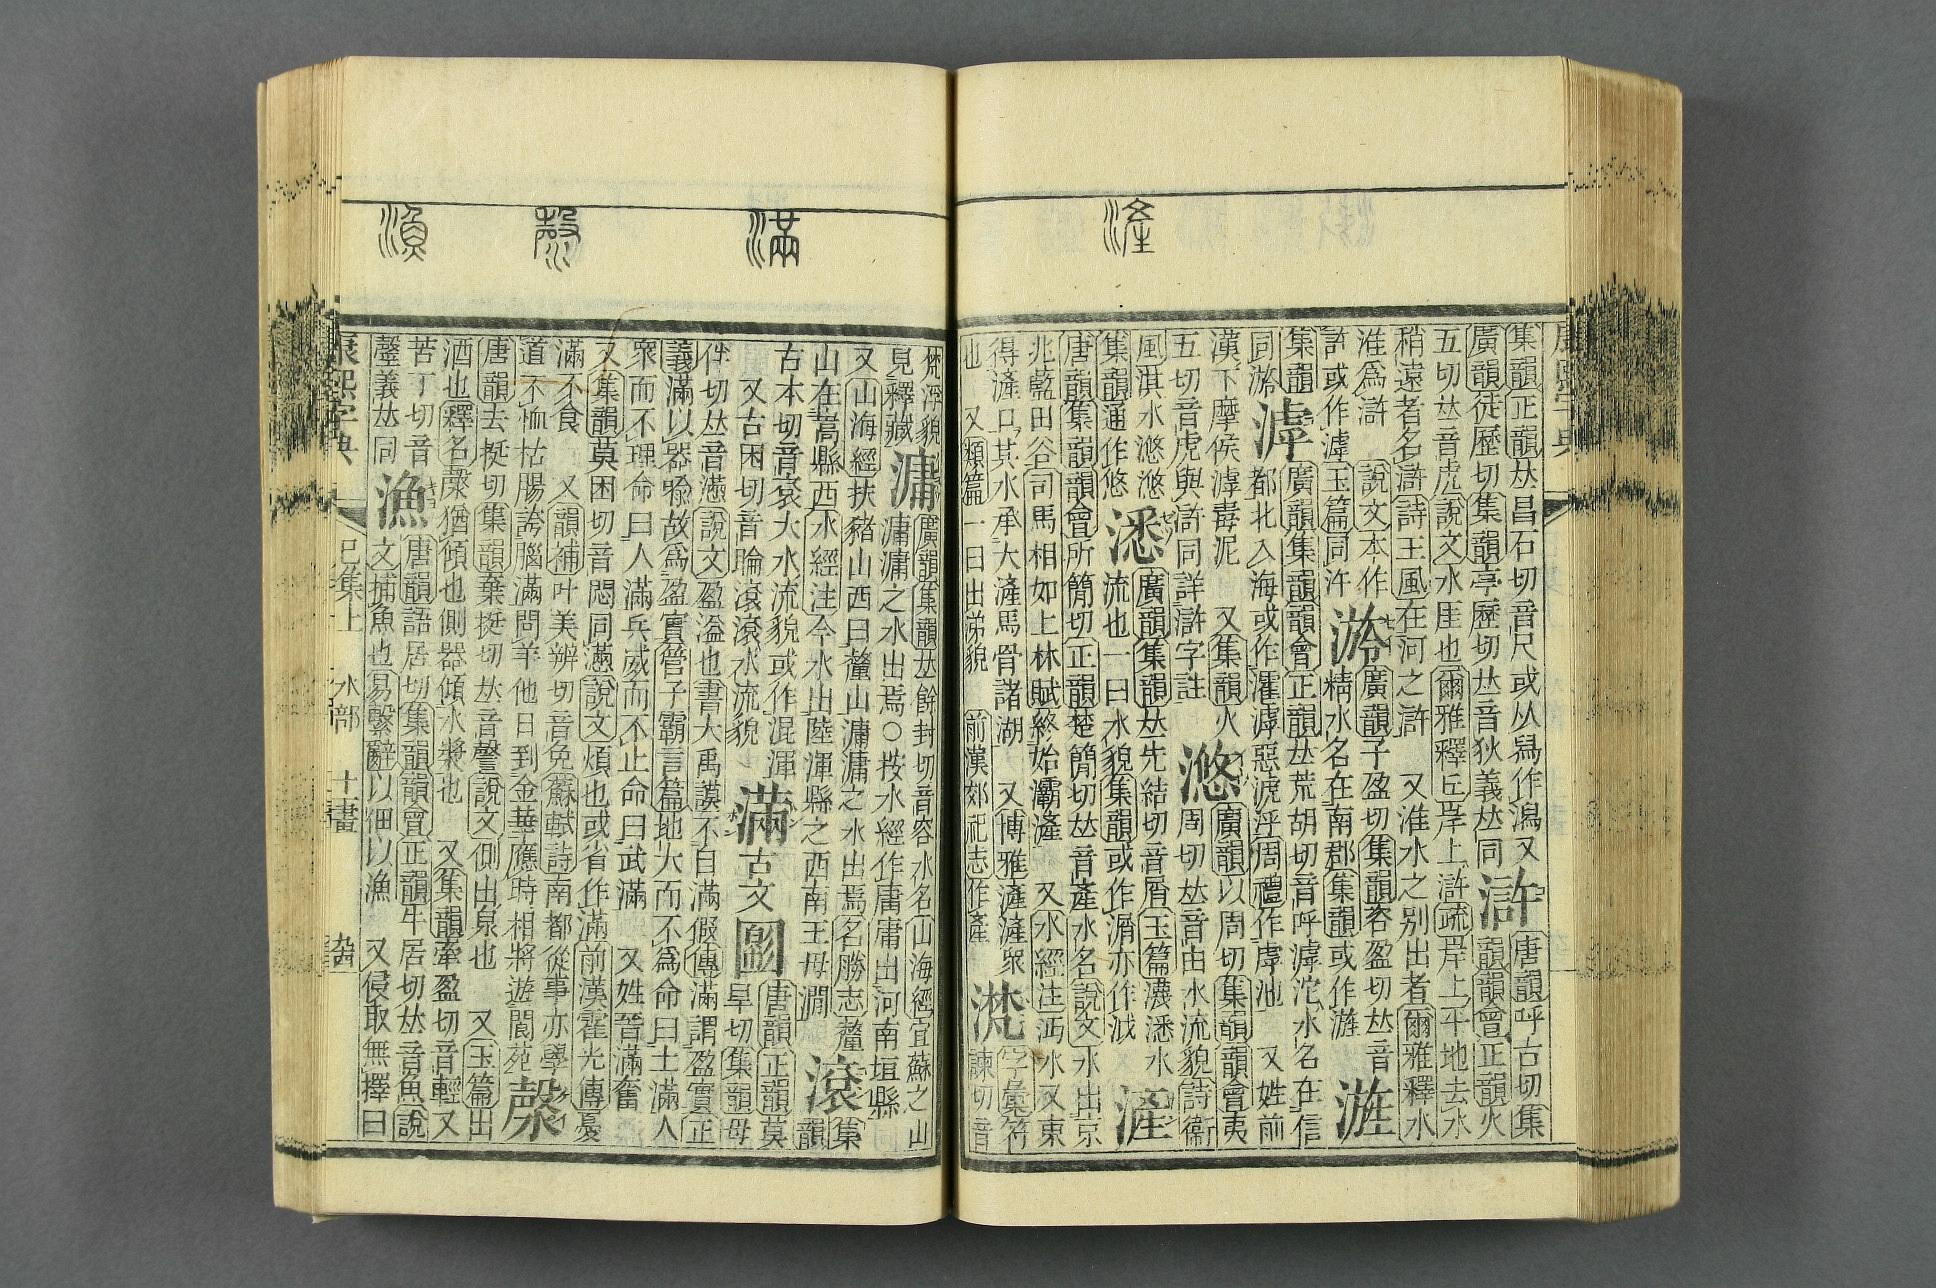 滻
集韻正韻𠀤昌石切音尺或从舄作潟又
廣韻徒歷切集韻亭歷切𠀤音狄義𠀤同
滸
唐韻呼古切集
韻韻會正韻火
五切𠀤音虎說文水厓也爾雅釋丘岸上滸疏岸上平地去水
稍遠者名滸詩王風在河之滸 又淮水之別出者爾雅釋水
淮為滸 說文本作
汻或作滹玉篇同汻
廣韻子盈切集韻咨盈切𠀤音
精水名在南郡集韻或作
集韻
同
滹
廣韻集韻韻會正韻𠀤荒胡切音呼滹沱水名在信
都北入海或作濩滹惡淲呼周禮作虖池 又姓前
漢下摩侯滹毒尼 又集韻火
五切音虎與滸同詳滸字註
滺
廣韻以周切集韻韻會夷
周切𠀤音由水流貌詩衞
風淇水滺滺
集韻通作悠
廣韻集韻𠀤先結切音屑玉篇瀎水
流也一曰水貌集韻或作亦作
滻
唐韻集韻韻會所簡切正韻楚簡切𠀤音產水名說文水出京
兆藍田谷司馬相如上林賦終始灞滻 又水經注沔水又東
得滻口其水承大滻馬骨諸湖 又博雅滻滻衆
也 又類篇一曰出涕貌 前漢郊祀志作產
滼
字彙符
諫切音
滿 漀 漁
梵浮貌
見釋藏
滽
廣韻集韻𠀤餘封切音容水名山海經宜蘇之山
滽滽之水出焉○按水經作庸庸出河南垣縣
又山海經扶豬山西曰釐山滽滽之水出焉名勝志釐
山在嵩縣西水經注今水出陸渾縣之西南王母澗
滾
集
韻
古本切音袞大水流貌或作混渾
又古困切音睔滾滾水流貌
滿
古文
唐韻正韻莫
旱切集韻母
伴切𠀤音懣說文盈溢也書大禹謨不自滿假傳滿謂盈實正
義滿以器喩故為盈實管子霸言篇地大而不為命曰土滿人
衆而不理命曰人滿兵威而不止命曰武滿 又姓晉滿奮
又集韻莫困切音悶同懣說文煩也或省作滿前漢霍光傳憂
滿不食 又韻補叶美辨切音免蘇軾詩南都從事亦學
道不恤枯腸誇腦滿問羊他日到金華應時相將遊閬苑
漀
唐韻去挺切集韻棄挺切𠀤音謦說文側出泉也 又玉篇出
酒也釋名漀猶傾也側器傾水漿也 又集韻牽盈切音輕又
苦丁切音
罄義𠀤同
漁
唐韻語居切集韻韻會正韻牛居切𠀤音魚說
文捕魚也易繫辭以佃以漁 又侵取無擇曰
康熙字典 巳集上 水部 十一畫